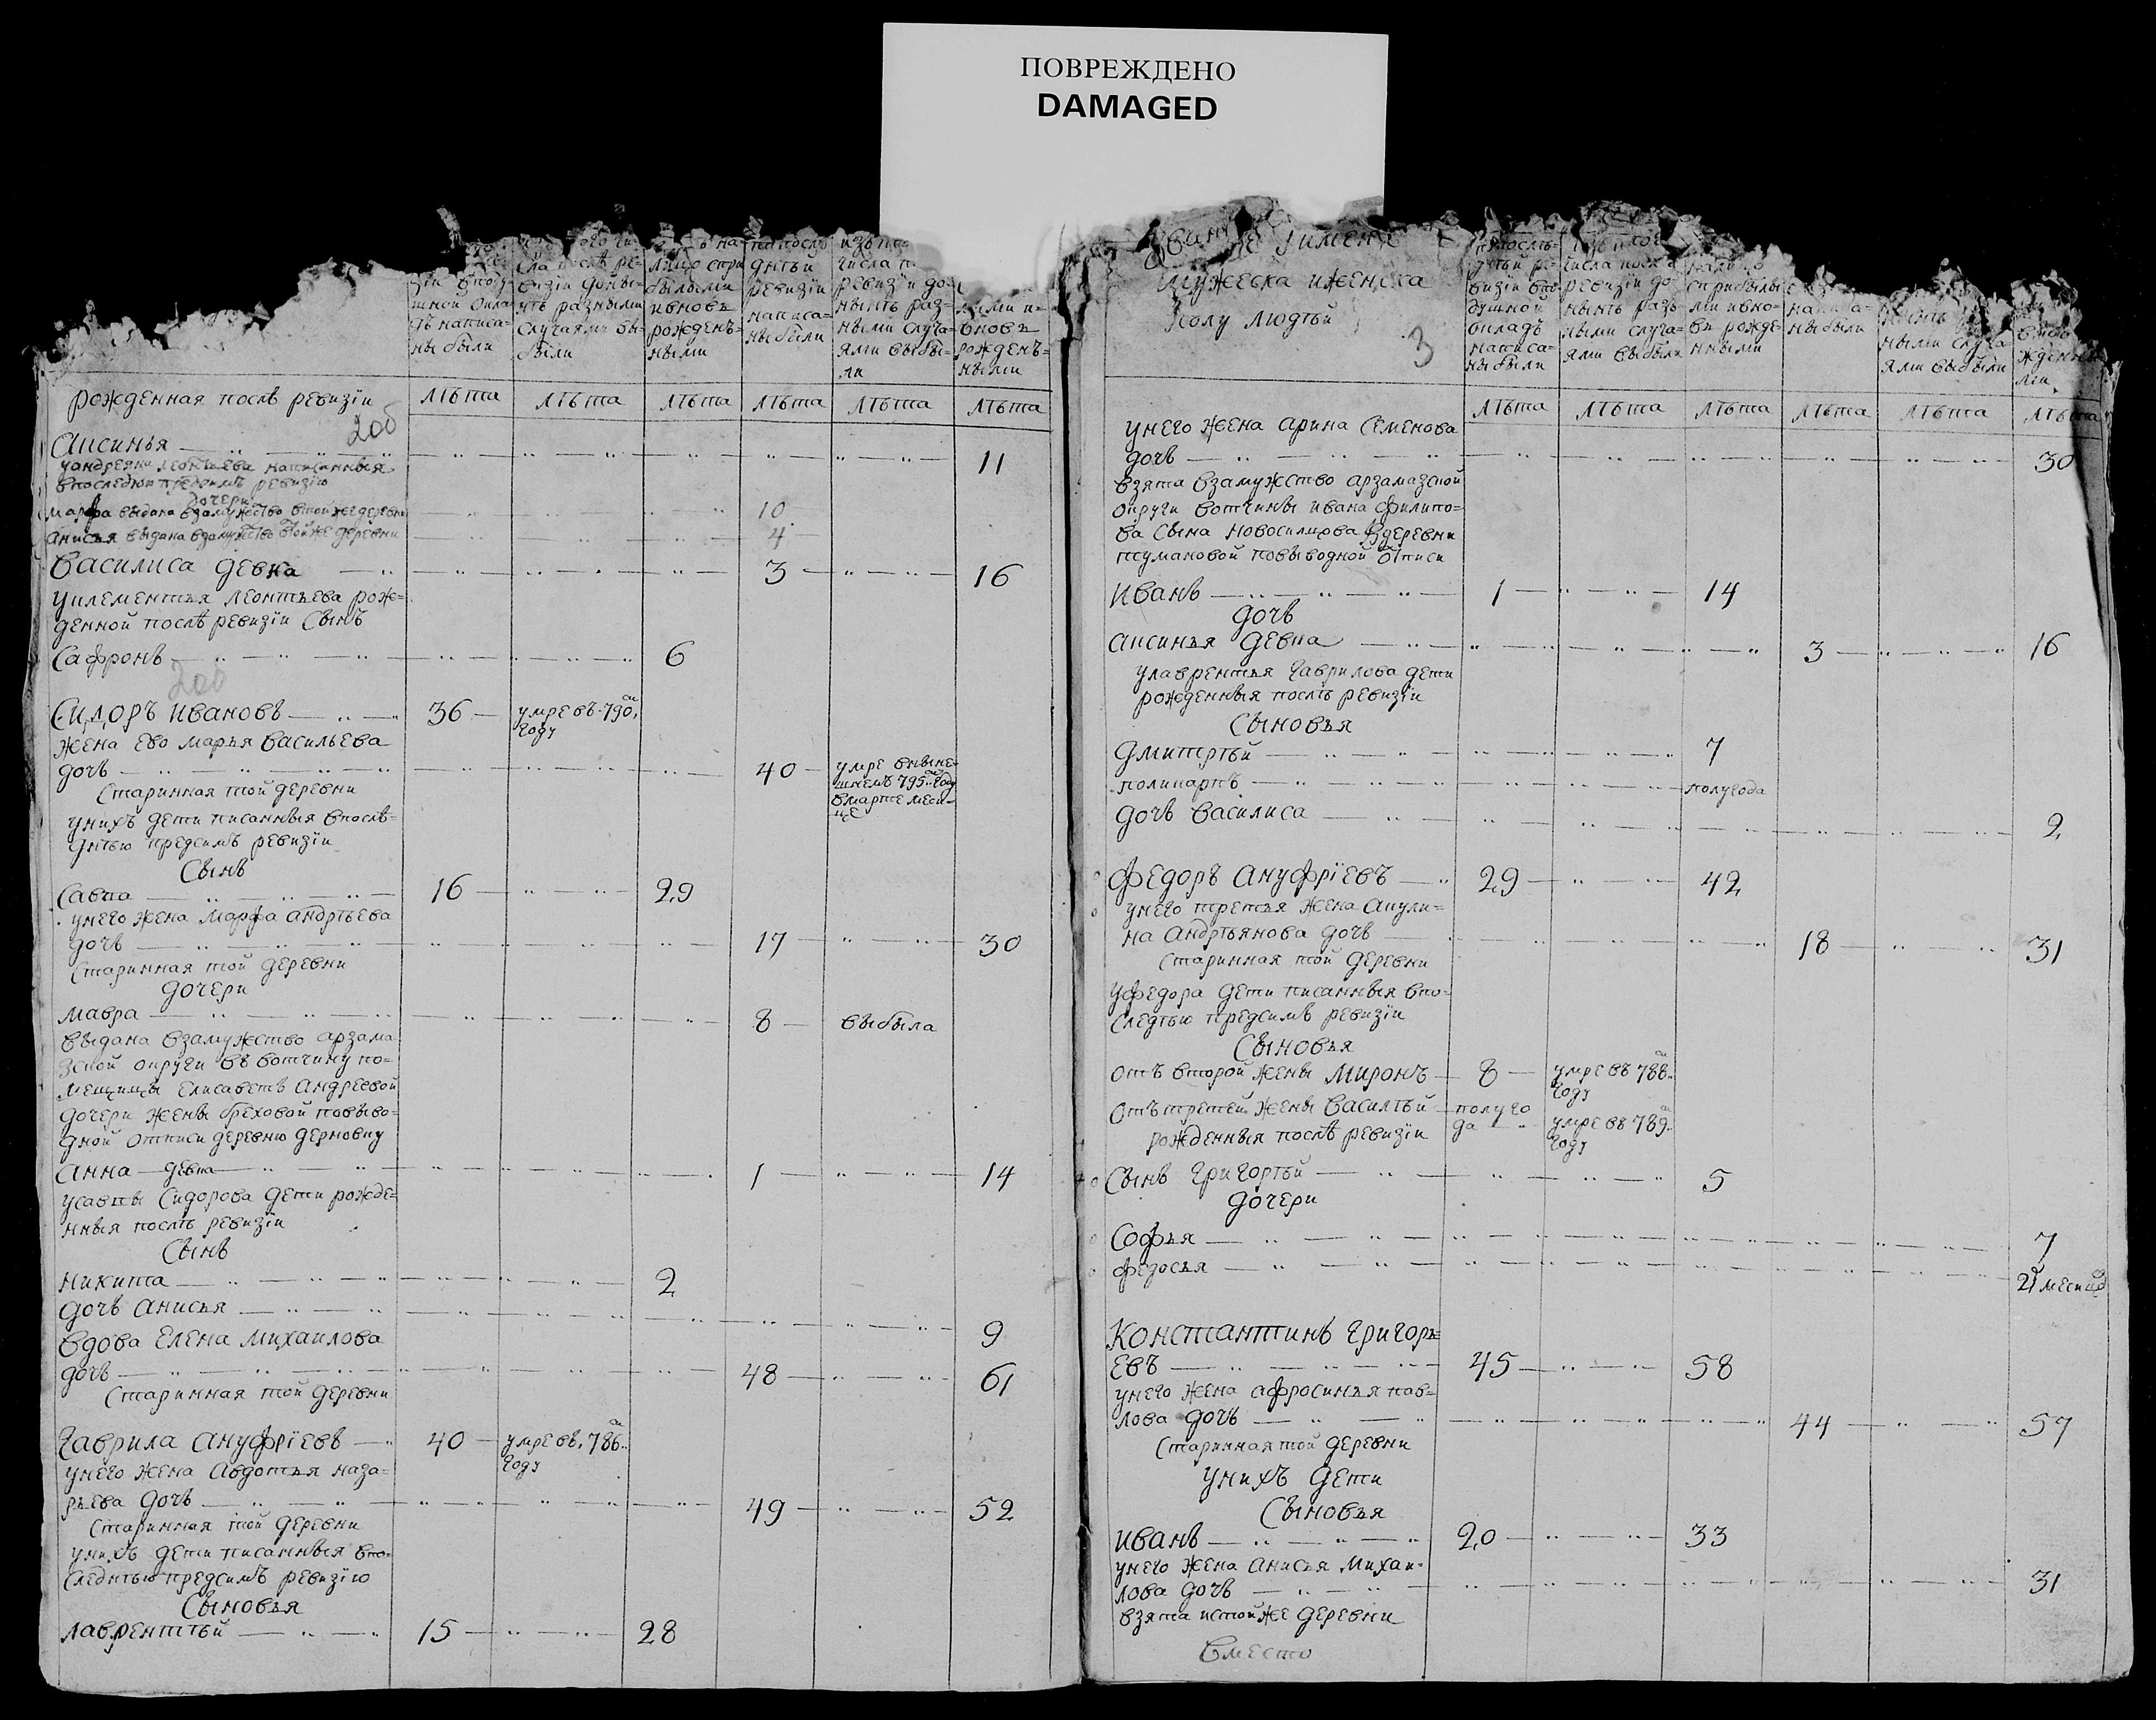 ПОВРЕЖДЕНО
DAMAGED
зіи вподу
шной окла
дъ написа=
ны были
сла послѣ ре=
визіи доны=
нѣ разными
случаями вы=
были
лицо спри
былыми
ивновь
рожденъ=
ными
дней
ревизіи
написа=
ны были
числа
ревизіи до
нынѣ раз=
ными случа=
ями выбы=
ли
вновь
рожденъ=
ными
рожденная послѣ ревизіи
лѣта лѣта лѣта лѣта лѣта лѣта
200
Аксинья 11
уандреяна леонтьева написанныя
впоследнюю предсимъ ревизію
дочери
Марфа выдана взамужство втойже деревни 10
Анисья выдана взамужство втойже деревни 4
Василиса девка 3 16
уклементья леонтьева рож=
денной послѣ ревизіи Сынъ
Сафронъ 6
200
Сидоръ Ивановъ 36 умре въ 790м
году
жена ево Марья Васильева
дочь 40 умре внын=
шнемъ 795м году
вмарте меся=
це
Старинная той деревни
унихъ дети писанныя впослѣ=
днѣю предсимъ ревизіи
Сынъ
Савка 16 29
унего жена Марфа Андрѣева
дочь 17 30
Старинная той деревни
дочери
Мавра 8 выбыла
выдана взамужство арзама
зской округи въ вотчину по=
мещицы Елисаветъ Андреевой
дочери жены Греховой повыво=
дной отписи деревню дерновку
Анна девка 1 14
усавки Сидорова дети рожде=
нныя послѣ ревизіи
Сынъ
Никита 2
дочь Анисья 9
Вдова Елена Михаилова
дочь 48 61
Старинная той деревни
Гаврила Ануфріевъ 40 умре въ 786м
году
унего жена Авдотья наза=
рьева дочь 49 52
Старинная той деревни
унихъ дети писанныя впо=
следнѣю предсимъ ревизію
Сыновья
Лаврентѣй 15 28
Мужеска иженска
полу людѣй
3
визіи впо
душной
окладъ
написа=
ны были
числа после
ревизіи до
нынѣ раз=
ными случа=
ями выбыли
сприбылы
ми ивно=
вь рожде=
нными
написа=
ны были
ными случа
ями выбыли
лѣта лѣта лѣта лѣта лѣта лѣта
унего жена Арина Семенова
дочь 30
взята взамужство арзамазской
округи вотчины ивана филипо=
ва сына Новосилцова вдеревни
тумановой повыводной отписи
Иванъ 1 14
дочь
Аксинья девка 3 16
улаврентья гаврилова дети
рожденныя послѣ ревизіи
Сыновья
Дмитрѣй 7
поликарпъ полугода
дочь Василиса 2
Федоръ Ануфріевъ 29 42
унего третья жена Акули=
на Андрѣянова дочь 18 31
Старинная той деревни
уфедора дети писанныя впо=
следнѣю предсимъ ревизіи
Сыновья
отъ второй жены Миронъ 8 умре въ 788м
году
отъ третей жены Василѣй полуго
да умре въ 789м
году
рожденныя послѣ ревизіи
Сынъ Григорѣй 5
дочери
Софья 7
федосья 2 месяца
Константинъ Григорь=
евъ 45 58
унего жена афросинья пав=
лова дочь 44 57
Старинная той деревни
унихъ дети
Сыновья
Иванъ 20 33
унего жена Анисья Михаи=
лова дочь 31
взята истойже деревни
Вместо